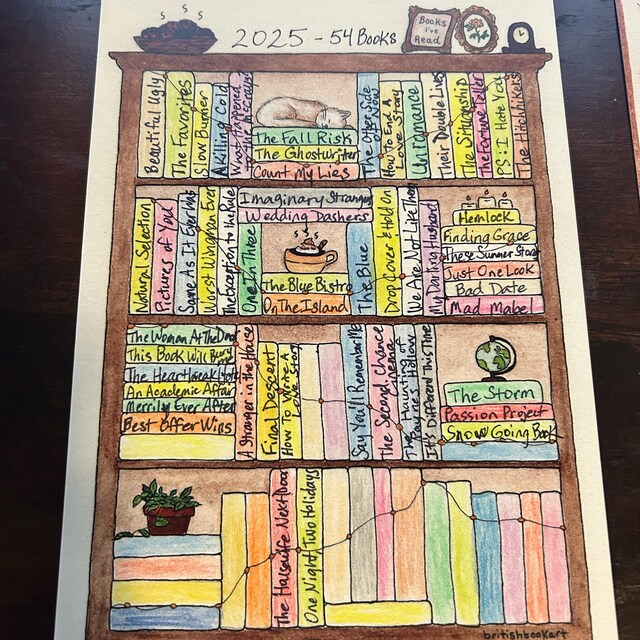 2025 - 54 Books
Books I've Read
Beautiful Ugly
The Favorites
Slow Burner
A Killing Cold
What Happened to the McCrays
The Fall Risk
The Ghostwriter
Count My Lies
The Other Side of Now
How To End A Love Story
Unromance
Their Double Lives
The Situationship
The Fortune Teller
PS: I Hate You
The Hitchhikers
Natural Selection
Pictures of You
Same As It Ever Was
Worst Wingman Ever
The Exception to the Rule
One In Three
Imaginary Strangers
Wedding Dashers
The Blue Bistro
On The Island
The Blue
Drop Cover & Hold On
We Are Not Like Them
My Darling Husband
Hemlock
Finding Grace
These Summer Storms
Just One Look
Bad Date
Mad Mabel
The Woman At The Door
This Book Will Bury
The Heartbreak
An Academic Affair
Merrily Ever After
Best Offer Wins
A Stranger in the House
Final Descent
How To Write A Love Story
Say You'll Remember Me
The Second Chance Cinema
The Haunting of Hollow
It's Different This Time
The Storm
Passion Project
Snow Going Back
The Housewife Next Door
One Night, Two Holidays
britishbookart